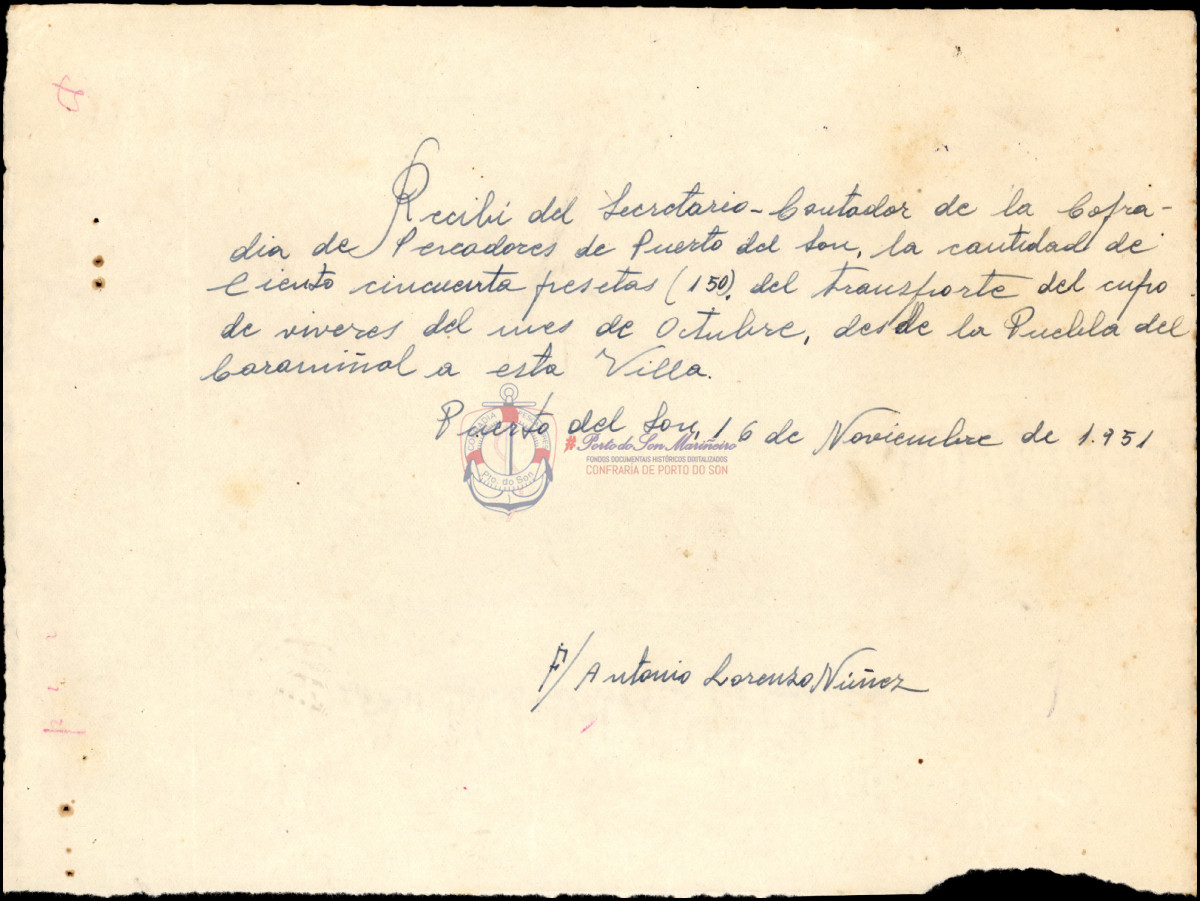 Recibí del Secretario-Contador de la Cofra-
dia de Pescadores de Puerto del Son, la cantidad de
Ciento cincuenta pesetas (150), del transporte del cupo
de viveres del mes de Octubre, desde la Puebla del
Caramiñal a esta Villa.
Puerto del Son, 16 de Noviembre de 1.951
#Porto do Son Mariñeiro
FONDOS DOCUMENTAIS HISTÓRICOS DIXITALIZADOS
CONFRARÍA DE PORTO DO SON
Pto. do Son
F/ Antonio Lorenzo Núñez